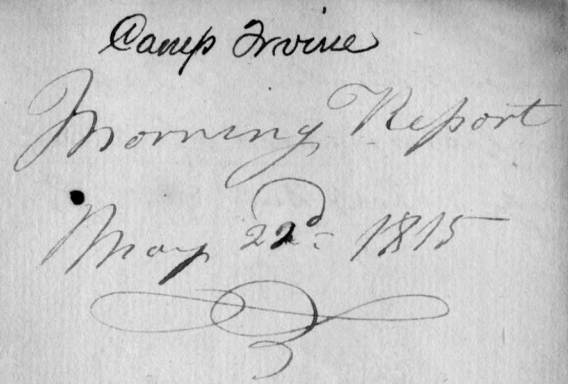 Camp Irvine
Morning Report
May 22d 1815